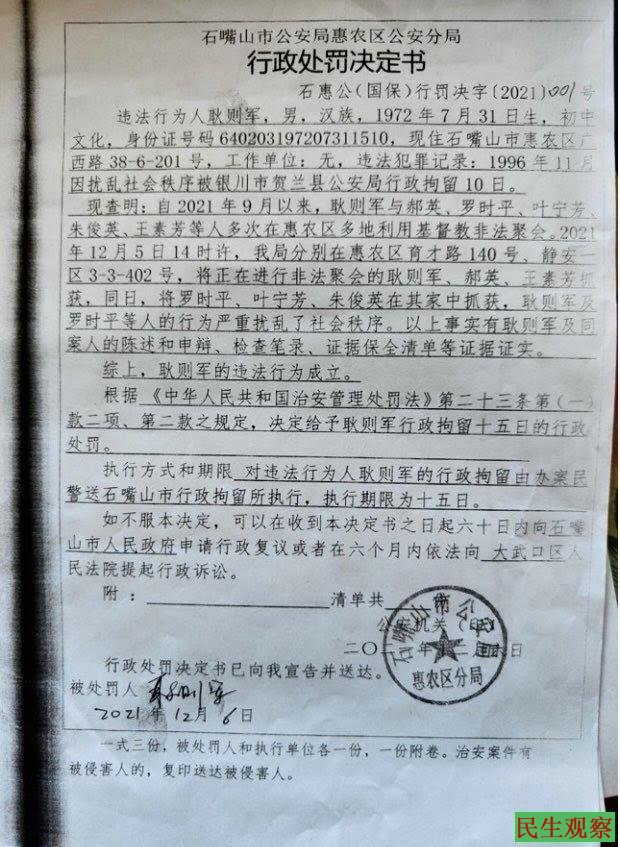 石嘴山市公安局惠农区公安分局
行政处罚决定书
石惠公(国保)行罚决字〔2021〕001号
违法行为人耿则军，男，汉族，1972年7月31日生，初中
文化，身份证号码640203197207311510，现住石嘴山市惠农区广
西路38-6-201号，工作单位：无，违法犯罪记录：1996年11月
因扰乱社会秩序被银川市贺兰县公安局行政拘留10日。
现查明：自2021年9月以来，耿则军与郝英、罗时平、叶宁芳、
朱俊英、王素芳等人多次在惠农区多地利用基督教非法聚会。2021
年12月5日14时许，我局分别在惠农区育才路140号、静安二
区3-3-402号，将正在进行非法聚会的耿则军、郝英、王素芳抓
获，同日，将罗时平、叶宁芳、朱俊英在其家中抓获，耿则军及
罗时平等人的行为严重扰乱了社会秩序。以上事实有耿则军及同
案人的陈述和申辩、检查笔录、证据保全清单等证据证实。
综上，耿则军的违法行为成立。
根据《中华人民共和国治安管理处罚法》第二十三条第(一)
款二项、第二款之规定，决定给予耿则军行政拘留十五日的行政
处罚。
执行方式和期限 对违法行为人耿则军的行政拘留由办案民
警送石嘴山市行政拘留所执行，执行期限为十五日。
如不服本决定，可以在收到本决定书之日起六十日内向石嘴
山市人民政府申请行政复议或者在六个月内依法向 大武口区人
民法院提起行政诉讼。
附： 清单共
公安机关（印）
二〇二
石嘴山市公安局
惠农区分局
行政处罚决定书已向我宣告并送达。
被处罚人 耿则军
2021年12月6日
一式三份，被处罚人和执行单位各一份，一份附卷。治安案件有
被侵害人的，复印送达被侵害人。
民生观察